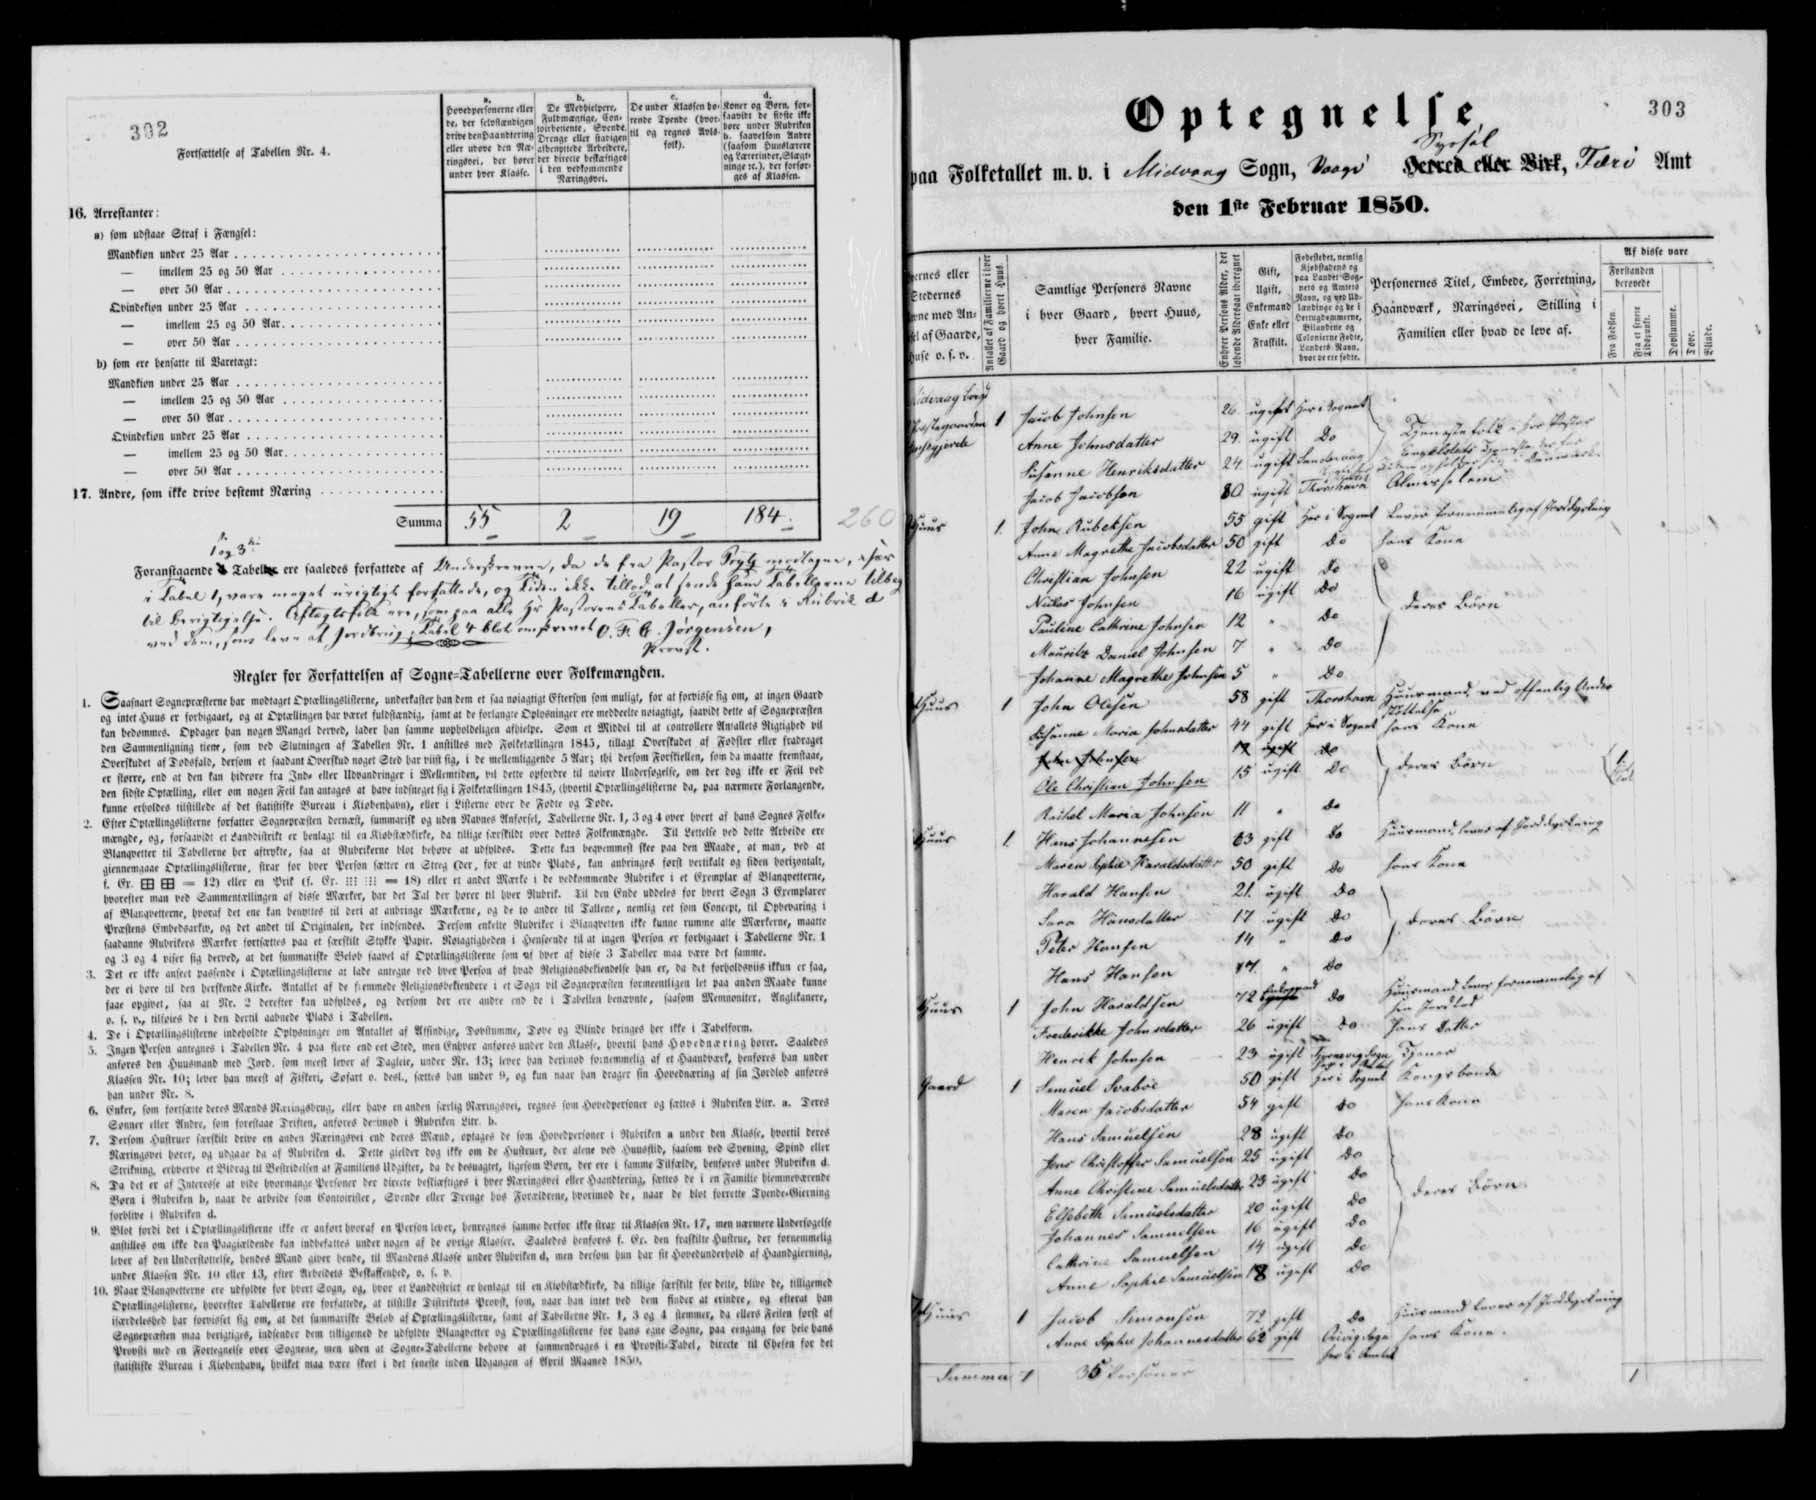 302
Fortsættelse af Tabellen Nr. 4.
a.
Hovedpersonerne eller de, der selvstændigen drive den Haandtering eller udøve den Næringsvei, der hører under hver Klasse.
b.
De Medhielpere, Fuldmægtige, Contoirbetiente, Svende, Drenge eller stadigen afbenyttede Arbeidere, der directe beskiæftiges i den vedkommende Næringsvei.
c.
De under Klassen hørende Tyende (hvortil og regnes Avlsfolk).
d.
Koner og Børn, forsaavidt de sidste ikke høre under Rubriken b. saavelsom Andre (saasom Huuslærere og Lærerinder, Slægtninge ꝛc.), der forsørges af Klassen.
16. Arrestanter:
a) som udstaae Straf i Fængsel:
Mandkiøn under 25 Aar
— imellem 25 og 50 Aar
— over 50 Aar
Qvindekiøn under 25 Aar
— imellem 25 og 50 Aar
— over 50 Aar
b) som ere hensatte til Varetægt:
Mandkiøn under 25 Aar
— imellem 25 og 50 Aar
— over 50 Aar
Qvindekiøn under 25 Aar
— imellem 25 og 50 Aar
— over 50 Aar
17. Andre, som ikke drive bestemt Næring
Summa 55 2 19 184 260
1 og 3
Foranstaaende Tabeller ere saaledes forfattede af Underskrevne, da de fra Pastor modtagne, især
i Tabel 1, vare meget urigtigt forfattede, og Tiden ikke tillod at sende ham Tabellerne tilbage
til Berigtigelse. Aftægtsfolk ere, som paa alle Hr Pastorens Tabeller, anførte i Rubrik d
ved dem, som leve af Jordbrug. Tabel 4 blot omskrevet O. F. C. Jørgensen,
Provst.
Regler for Forfattelsen af Sogne-Tabellerne over Folkemængden.
1. Saasnart Sognepræsterne har modtaget Optællingslisterne, underkaster han dem et saa nøiagtigt Eftersyn som muligt, for at forvisse sig om, at ingen Gaard
og intet Huus er forbigaaet, og at Optællingen har været fuldstændig, samt at de forlangte Oplysninger ere meddeelte nøiagtigt, saavidt dette af Sognepræsten
kan bedømmes. Opdager han nogen Mangel derved, lader han samme uopholdeligen afhielpe. Som et Middel til at controllere Antallets Rigtighed vil
den Sammenligning tiene, som ved Slutningen af Tabellen Nr. 1 anstilles med Folketællingen 1845, tillagt Overskudet af Fødsler eller fradraget
Overskudet af Dødsfald, dersom et saadant Overskud noget Sted har viist sig, i de mellemliggende 5 Aar; thi dersom Forskiellen, som da maatte fremstaae,
er større, end at den kan hidrøre fra Ind- eller Udvandringer i Mellemtiden, vil dette opfordre til nøiere Undersøgelse, om der dog ikke er Feil ved
den sidste Optælling, eller om nogen Feil kan antages at have indsneget sig i Folketællingen 1845, (hvortil Optællingslisterne da, paa nærmere Forlangende,
kunne erholdes tilstillede af det statistiske Bureau i Kiøbenhavn), eller i Listerne over de Fødte og Døde.
2. Efter Optællingslisterne forfatter Sognepræsten dernæst, summarisk og uden Navnes Anførsel, Tabellerne Nr. 1, 3 og 4 over hvert af hans Sognes Folkemængde,
og, forsaavidt et Landdistrikt er henlagt til en Kiøbstædkirke, da tillige særskildt over dettes Folkemængde. Til Lettelse ved dette Arbeide ere
Blanqvetter til Tabellerne her aftrykte, saa at Rubrikerne blot behøve at udfyldes. Dette kan beqvemmest skee paa den Maade, at man, ved at
giennemgaae Optællingslisterne, strax for hver Person sætter en Streg (der, for at vinde Plads, kan anbringes først vertikalt og siden horizontalt,
f. Ex. = 12) eller en Prik (f. Ex. = 18) eller et andet Mærke i de vedkommende Rubriker i et Exemplar af Blanqvetterne,
hvorefter man ved Sammentællingen af disse Mærker, har det Tal der hører til hver Rubrik. Til den Ende uddeles for hvert Sogn 3 Exemplarer
af Blanqvetterne, hvoraf det ene kan benyttes til deri at anbringe Mærkerne, og de to andre til Tallene, nemlig eet som Concept, til Opbevaring i
Præstens Embedsarkiv, og det andet til Originalen, der indsendes. Dersom enkelte Rubriker i Blanqvetten ikke kunne rumme alle Mærkerne, maatte
saadanne Rubrikers Mærker fortsættes paa et særskilt Stykke Papir. Nøiagtigheden i Henseende til at ingen Person er forbigaaet i Tabellerne Nr. 1
og 3 og 4 viser sig derved, at det summariske Beløb saavel af Optællingslisterne som af hver af disse 3 Tabeller maa være det samme.
3. Det er ikke anseet passende i Optællingslisterne at lade antegne ved hver Person af hvad Religionsbekiendelse han er, da det forholdsviis ikkun er faa,
der ei høre til den herskende Kirke. Antallet af de fremmede Religionsbekiendere i et Sogn vil Sognepræsten formeentligen let paa anden Maade kunne
faae opgivet, saa at Nr. 2 derefter kan udfyldes, og dersom der ere andre end de i Tabellen benævnte, saasom Memnoniter, Anglikanere,
o. s. v., tilføies de i den dertil aabnede Plads i Tabellen.
4. De i Optællingslisterne indeholdte Oplysninger om Antallet af Afsindige, Døvstumme, Døve og Blinde bringes her ikke i Tabelform.
5. Ingen Person antegnes i Tabellen Nr. 4 paa flere end eet Sted, men Enhver anføres under den Klasse, hvortil hans Hovednæring hører. Saaledes
anføres den Huusmand med Jord, som meest lever af Dagleie, under Nr. 13; lever han derimod fornemmelig af et Haandværk, henføres han under
Klassen Nr. 10; lever han meest af Fiskeri, Søfart o. desl., sættes han under 9, og kun naar han drager sin Hovednæring af sin Jordlod anføres
han under Nr. 8.
6. Enker, som fortsætte deres Mænds Næringsbrug, eller have en anden særlig Næringsvei, regnes som Hovedpersoner og sættes i Rubriken Litr. a. Deres
Sønner eller Andre, som forestaae Driften, anføres derimod i Rubriken Litr. b.
7. Dersom Hustruer særskilt drive en anden Næringsvei end deres Mænd, optages de som Hovedpersoner i Rubriken a under den Klasse, hvortil deres
Næringsvei hører, og udgaae da af Rubriken d. Dette gielder dog ikke om de Hustruer, der alene ved Huusflid, saasom ved Syening, Spind eller
Strikning, erhverve et Bidrag til Bestridelsen af Familiens Udgifter, da de desuagtet, ligesom Børn, der ere i samme Tilfælde, henføres under Rubriken d.
8. Da det er af Interesse at vide hvormange Personer der directe beskiæftiges i hver Næringsvei eller Haandtering, sættes de i en Familie hjemmeværende
Børn i Rubriken b, naar de arbeide som Contoirister, Svende eller Drenge hos Forældrene, hvorimod de, naar de blot forrette Tyende-Gierning
forblive i Rubriken d.
9. Blot fordi det i Optællingslisterne ikke er anført hvoraf en Person lever, henregnes samme derfor ikke strax til Klassen Nr. 17, men nærmere Undersøgelse
anstilles om ikke den Paagiældende kan indbefattes under nogen af de øvrige Klasser. Saaledes henføres f. Ex. den fraskilte Hustrue, der fornemmelig
lever af den Understøttelse, hendes Mand giver hende, til Mandens Klasse under Rubriken d, men dersom hun har sit Hovedunderhold af Haandgierning,
under Klassen Nr. 10 eller 13, efter Arbeidets Beskaffenhed, o. s. v.
10. Naar Blanqvetterne ere udfyldte for hvert Sogn, og, hvor et Landdistrict er henlagt til en Kiøbstædkirke, da tillige særskilt for dette, blive de, tilligemed
Optællingslisterne, hvorefter Tabellerne ere forfattede, at tilstille Distriktets Provst, som, naar han intet ved dem finder at erindre, og efterat han
isærdeleshed har forvisset sig om, at det summariske Beløb af Optællingslisterne, samt af Tabellerne Nr. 1, 3 og 4 stemmer, da ellers Feilen først af
Sognepræsten maa berigtiges, indsender dem tilligemed de udfyldte Blanqvetter og Optællingslisterne for hans egne Sogne, paa eengang for hele hans
Provsti med en Fortegnelse over Sognene, men uden at Sogne-Tabellerne behøve at sammendrages i en Provsti-Tabel, directe til Chefen for det
statistiske Bureau i Kiøbenhavn, hvilket maa være skeet i det seneste inden Udgangen af April Maaned 1850.
303
Optegnelse
Syssel
paa Folketallet m. v. i Midvaag Sogn, Vaagø Herred eller Birk, Færø Amt
den 1ste Februar 1850.
Antallet af Familierne i hver Gaard og hvert Huus.
Samtlige Personers Navne i hver Gaard, hvert Huus, hver Familie.
Enhver Persons Alder, det løbende Aldersaar iberegnet
Gift, Ugift, Enkemand Enke eller Fraskilt.
Fødestedet, nemlig Kjøbstadens og paa Landet Sognets og Amtets Navn, og ved Udlændinge og de i Hertugdømmerne, Bilandene og Colonierne Fødte, Landets Navn, hvor de ere fødte.
Personernes Titel, Embede, Forretning, Haandværk, Næringsvei, Stilling i Familien eller hvad de leve af.
Af disse vare
Forstanden berøvede
Fra Fødslen.
Fra et senere Tidspunkt.
Døvstumme.
Døve.
Blinde.
1 Jacob Johnsen 26 ugift Her i Sognet
Anne Johnsdatter 29 ugift Do
Susanne Henriksdatter 24 ugift
Jacob Jacobsen 80 ugift Thorshavn Almisselem
Huus 1 John Rubeksen 55 gift Her i Sognet Lever fornemmelig af Jorddyrkning
Anne Magrethe Jacobsdatter 50 gift Do hans Kone
Christian Johnsen 22 ugift Do
Niclas Johnsen 16 ugift Do
Pauline Cathrine Johnsen 12 " Do deres Børn
Mouritz Daniel Johnsen 7 " Do
Johanne Magrethe Johnsen 5 " Do
Huus 1 John Olesen 58 gift Thorshavn Huusmand, ved offentlig Understøttelse
Susanne Maria Johnsdatter 44 gift Her i Sognet hans Kone
John Johnsen 18 ugift Do
Ole Christian Johnsen 15 ugift Do deres Børn
Rachel Maria Johnsen 11 " Do
Huus 1 Hans Johannesen 63 gift Do Huusmand, lever af Jorddyrkning
Maren Sophie Haraldsdatter 50 gift Do hans Kone
Harald Hansen 21 ugift Do
Sara Hansdatter 17 ugift Do deres Børn
Peter Hansen 14 " Do
Hans Hansen " Do
Huus 1 John Haraldsen 72 Enkemand Do Huusmand lever fornemmelig af sin Jordlod
Frederikke Johnsdatter 26 ugift Do hans Datter
Henrik Johnsen 23 ugift Tjener
Gaard 1 Samuel Svabøe 50 gift Her i Sognet Kongsbonde
Maren Jacobsdatter 54 gift Do hans Kone
Hans Samuelsen 28 ugift Do
Jens Christoffer Samuelsen 25 ugift Do
Anne Christine Samuelsdatter 23 ugift Do
Elsebeth Samuelsdatter 20 ugift Do deres Børn
Johannes Samuelsen 16 ugift Do
Cathrine Samuelsen 14 ugift Do
Anne Sophie Samuelsen 18 ugift Do
Huus 1 Jacob Simonsen 72 gift Do Huusmand lever af Jorddyrkning
Anne Sophie Johannesdatter 62 gift her i Amtet hans Kone.
Summa 7 35 Personer 1